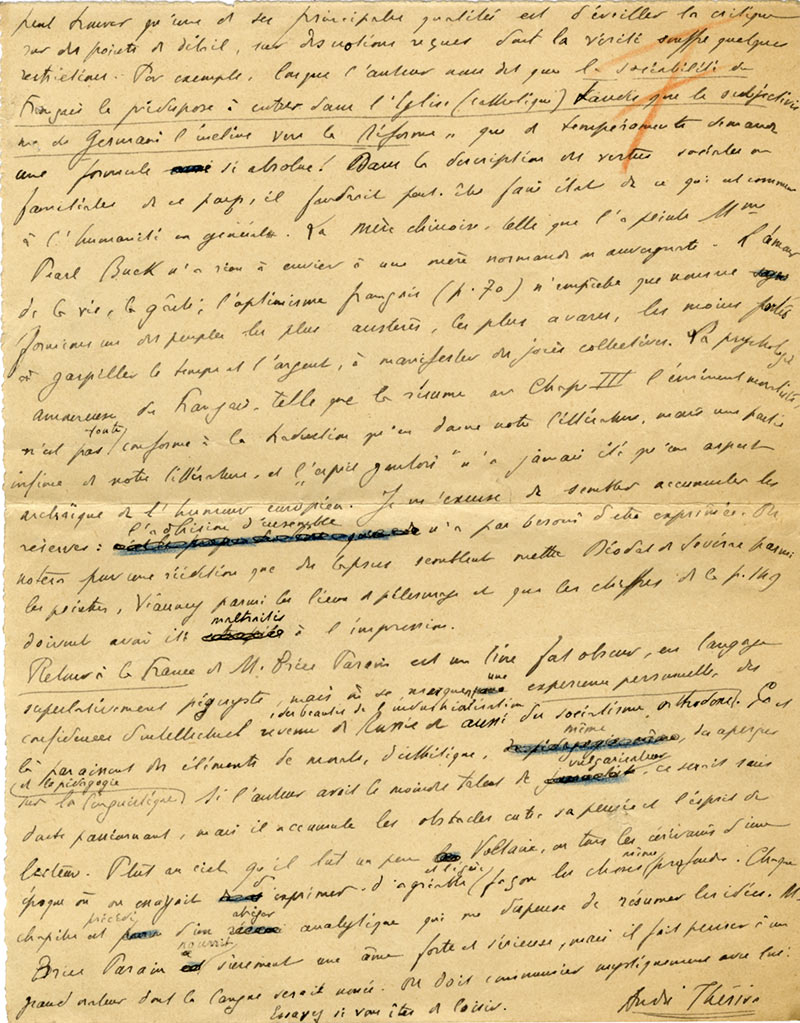 peut trouver qu'une de ses principales qualités est d'éveiller la critique
sur des points de détail, sur des notions reçues dont la vérité souffre quelques
restrictions. Par exemple, lorsque l'auteur nous dit que la sociabilité du
Français le prédispose à entrer dans l'Eglise (catholique) tandis que le subjectivis
me du Germain l'incline vers la Réforme, que de tempéraments demande
une formule si absolue! Dans la description des vertus sociales ou
familiales de ce pays, il faudrait peut-être faire état de ce qui est commun
à l'humanité en général. La mère chinoise telle que l'a peinte Mme
Pearl Buck n'a rien à envier à une mère normande ou auvergnate. L'amour
de la vie, la gaîté, l'optimisme français (p. 70) n'empêche que nous ne
formions un des peuples les plus austères, les plus avares, les moins portés
à gaspiller le temps et l'argent, à manifester des joies collectives. La psychologie
amoureuse du Français, telle que la résume au Chap. III l'éminent moraliste,
n'est pas toute conforme à la traduction qu'en donne notre littérature, mais une partie
infime de notre littérature, et "l'esprit gaulois" n'a jamais été qu'un aspect
archaïque de l'humour européen. Je m'excuse de sembler accumuler les
réserves: l'adhésion d'ensemble n'a pas besoin d'être exprimée. On
notera pour une réédition que des lapsus semblent mettre Déodat de Séverac parmi
les peintres, Vianney parmi les lieux de pèlerinage et que les chiffres de la p. 149
doivent avoir été maltraités à l'impression.
Retour à la France de M. Brice Parain est un livre fort obscur, en langage
superlativement péguyste, mais où se marque une expérience personnelle, des
confidences d'intellectuel revenu de Russie et aussi des beautés de l'industrialisation, du socialisme orthodoxe. Çà et
là paraissent des éléments de morale, d'esthétique, même, des aperçus
sur la linguistique et la pédagogie. Si l'auteur avait le moindre talent de vulgarisateur, ce serait sans
doute passionnant, mais il accumule les obstacles entre sa pensée et l'esprit du
lecteur. Plût au ciel qu'il lût un peu Voltaire, ou tous les écrivains d'une
époque où on essayait d'exprimer d'agréable et légère façon les choses même profondes. Chaque
chapitre est précédé d'un abrégé analytique qui me dispense de résumer les idées. M.
Brice Parain a nourri sûrement une âme forte et sérieuse, mais il fait penser à un
grand orateur dont la langue serait nouée. On doit communier mystiquement avec lui.
Essayez si vous êtes de loisir.
André Thérive